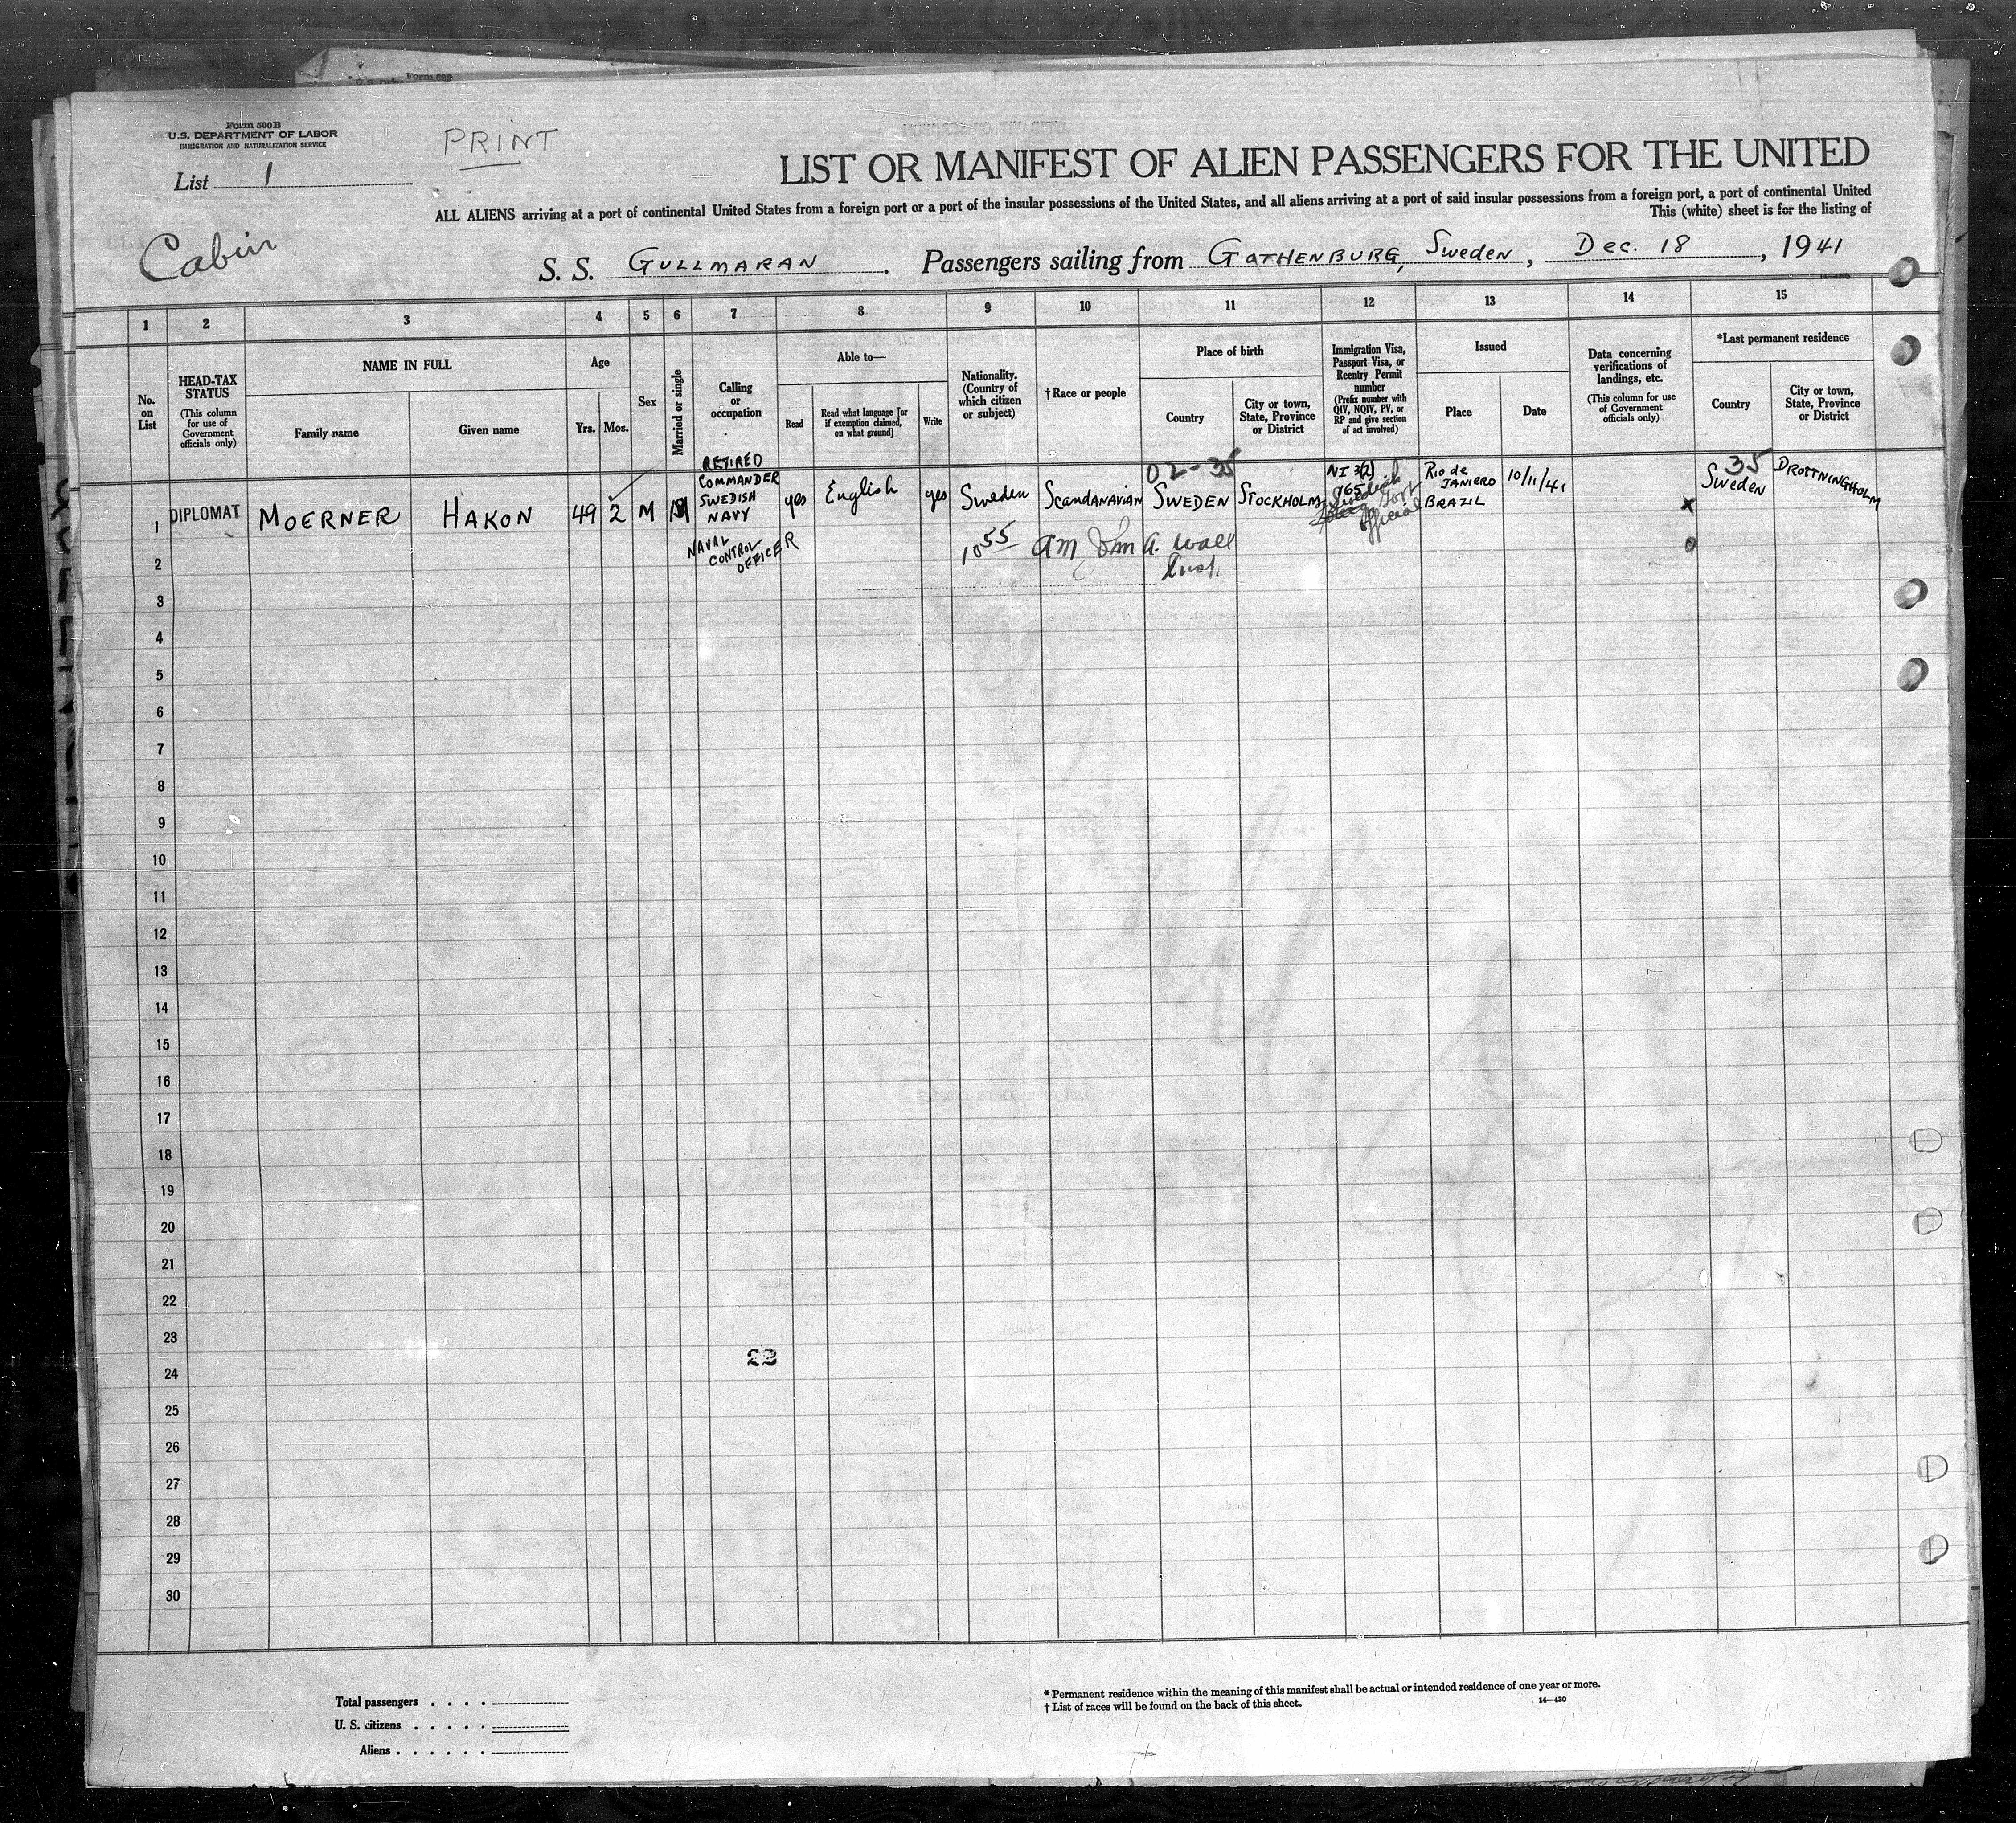 Form 500B
U.S. DEPARTMENT OF LABOR
IMMIGRATION AND NATURALIZATION SERVICE
List 1
PRINT
LIST OR MANIFEST OF ALIEN PASSENGERS FOR THE UNITED
ALL ALIENS arriving at a port of continental United States from a foreign port or a port of the insular possessions of the United States, and all aliens arriving at a port of said insular possessions from a foreign port, a port of continental United
This (white) sheet is for the listing of
Cabin
S. S. GULLMARAN. Passengers sailing from GOTHENBURG, Sweden, Dec. 18, 1941
1 2 3 4 5 6 7 8 9 10 11 12 13 14 15
No. on List
HEAD-TAX STATUS
(This column for use of Government officials only)
NAME IN FULL
Family name
Given name
Age
Yrs.
Mos.
Sex
Married or single
Calling or occupation
Able to—
Read
Read what language [or if exemption claimed, on what ground]
Write
Nationality. (Country of which citizen or subject)
†Race or people
Place of birth
Country
City or town, State, Province or District
Immigration Visa, Passport Visa, or Reentry Permit number
(Prefix number with QIV, NQIV, PV, or RP and give section of act involved)
Issued
Place
Date
Data concerning verifications of landings, etc.
(This column for use of Government officials only)
*Last permanent residence
Country
City or town, State, Province or District
02-35
35
1 DIPLOMAT MOERNER HAKON 49 2 M
RETIRED
COMMANDER
SWEDISH
NAVY
yes English yes Sweden Scandanavian SWEDEN STOCKHOLM
NI 3(2)
765
Swedish Govt
official
Rio de
JANIERO
BRAZIL
10/11/41
x
Sweden DROTTNINGHOLM
NAVAL
CONTROL
OFFICER
10 55 am John A. Wall
Insp.
2
3
4
5
6
7
8
9
10
11
12
13
14
15
16
17
18
19
20
21
22
23
22
24
25
26
27
28
29
30
Total passengers . . . .
U. S. citizens . . . . .
Aliens . . . . . .
* Permanent residence within the meaning of this manifest shall be actual or intended residence of one year or more.
† List of races will be found on the back of this sheet.
14—430